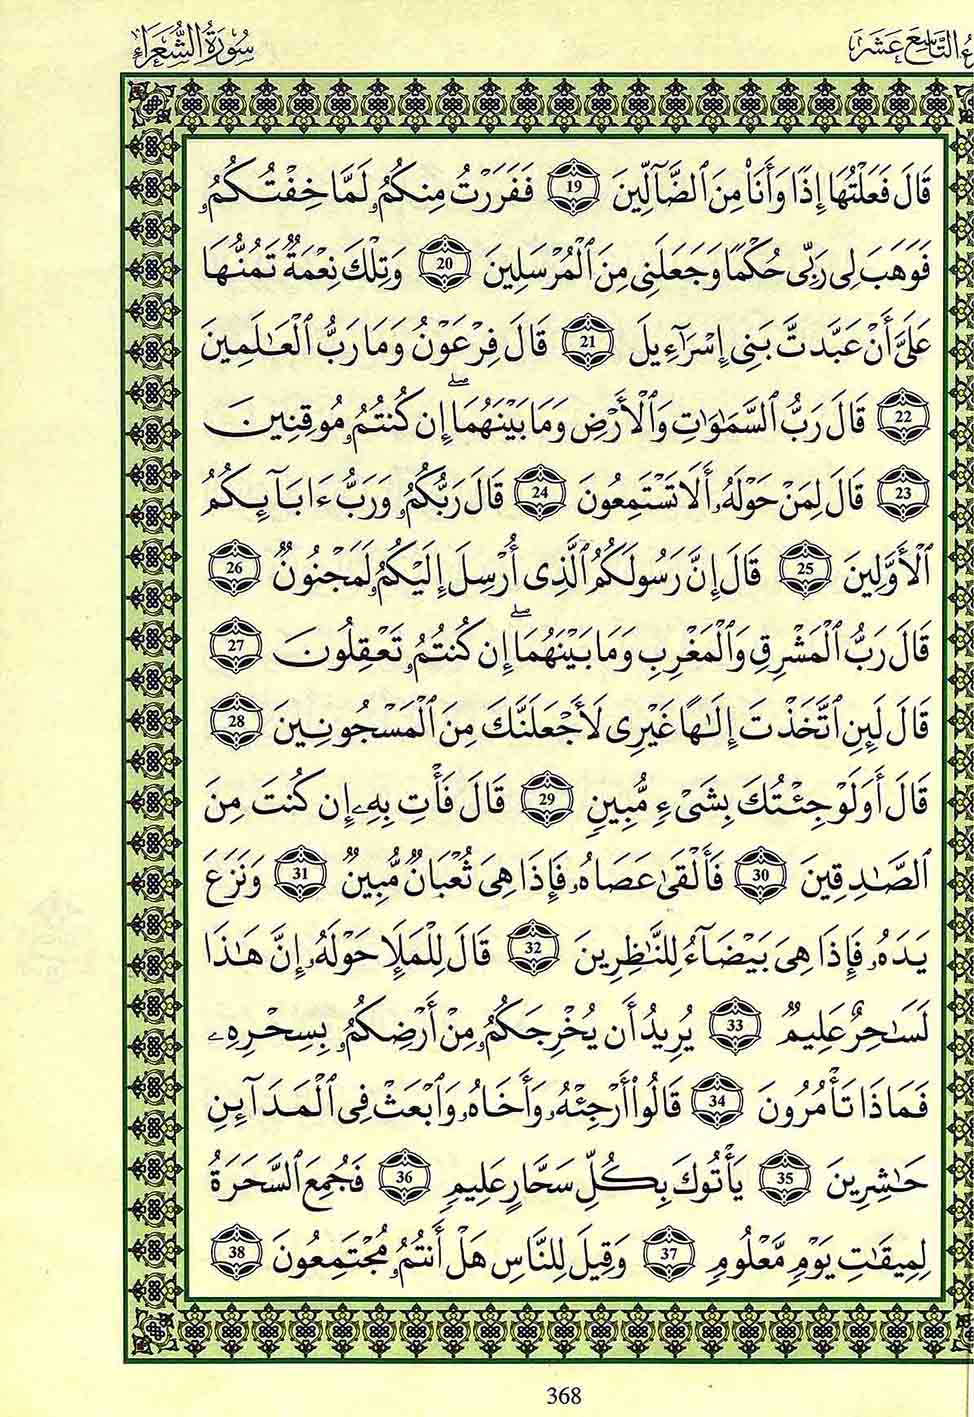 ءُ التَّاسِعَ عَشَرَ
سُورَةُ الشُّعَرَاءِ
قَالَ فَعَلْتُهَا إِذًا وَأَنَا۠ مِنَ ٱلضَّآلِّينَ 19 فَفَرَرْتُ مِنكُمُۥ لَمَّا خِفْتُكُمُۥ
فَوَهَبَ لِى رَبِّى حُكْمًا وَجَعَلَنِى مِنَ ٱلْمُرْسَلِينَ 20 وَتِلْكَ نِعْمَةٌ تَمُنُّهَا
عَلَىَّ أَنْ عَبَّدتَّ بَنِى إِسْرَآءِيلَ 21 قَالَ فِرْعَوْنُ وَمَا رَبُّ ٱلْعَٰلَمِينَ
22 قَالَ رَبُّ ٱلسَّمَٰوَٰتِ وَٱلْأَرْضِ وَمَا بَيْنَهُمَا ۖ إِن كُنتُمُۥ مُوقِنِينَ
23 قَالَ لِمَنْ حَوْلَهُۥ أَلَا تَسْتَمِعُونَ 24 قَالَ رَبُّكُمُۥ وَرَبُّ ءَابَآئِكُمُ
ٱلْأَوَّلِينَ 25 قَالَ إِنَّ رَسُولَكُمُ ٱلَّذِى أُرْسِلَ إِلَيْكُمُۥ لَمَجْنُونٌ 26
قَالَ رَبُّ ٱلْمَشْرِقِ وَٱلْمَغْرِبِ وَمَا بَيْنَهُمَا ۖ إِن كُنتُمُۥ تَعْقِلُونَ 27
قَالَ لَئِنِ ٱتَّخَذْتَ إِلَٰهًا غَيْرِى لَأَجْعَلَنَّكَ مِنَ ٱلْمَسْجُونِينَ 28
قَالَ أَوَلَوْ جِئْتُكَ بِشَىْءٍ مُّبِينٍ 29 قَالَ فَأْتِ بِهِۦ إِن كُنتَ مِنَ
ٱلصَّٰدِقِينَ 30 فَأَلْقَىٰ عَصَاهُۥ فَإِذَا هِىَ ثُعْبَانٌ مُّبِينٌ 31 وَنَزَعَ
يَدَهُۥ فَإِذَا هِىَ بَيْضَآءُ لِلنَّٰظِرِينَ 32 قَالَ لِلْمَلَإِ حَوْلَهُۥ إِنَّ هَٰذَا
لَسَٰحِرٌ عَلِيمٌ 33 يُرِيدُ أَن يُخْرِجَكُمُۥ مِنْ أَرْضِكُمُۥ بِسِحْرِهِۦ
فَمَاذَا تَأْمُرُونَ 34 قَالُوا۟ أَرْجِئْهُۥ وَأَخَاهُۥ وَٱبْعَثْ فِى ٱلْمَدَآئِنِ
حَٰشِرِينَ 35 يَأْتُوكَ بِكُلِّ سَحَّارٍ عَلِيمٍ 36 فَجُمِعَ ٱلسَّحَرَةُ
لِمِيقَٰتِ يَوْمٍ مَّعْلُومٍ 37 وَقِيلَ لِلنَّاسِ هَلْ أَنتُمُۥ مُجْتَمِعُونَ 38
368